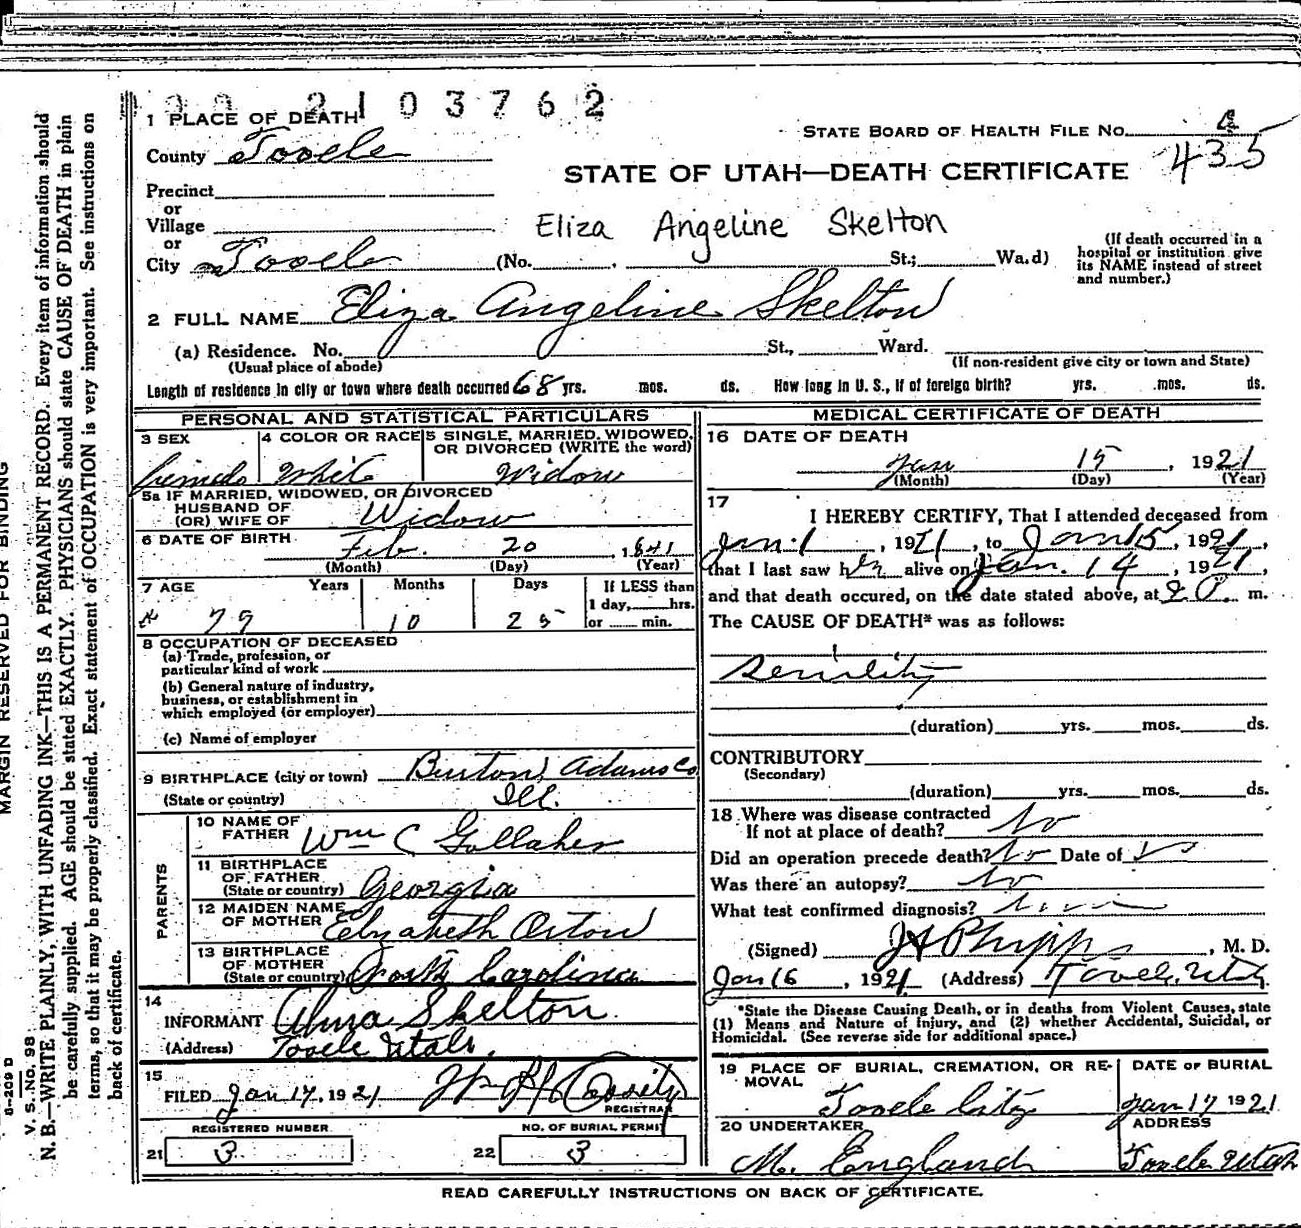 2103762
1 PLACE OF DEATH
STATE BOARD OF HEALTH FILE NO. 4
435
County Tooele
STATE OF UTAH—DEATH CERTIFICATE
Precinct
or
Village
Eliza Angeline Skelton
or
City Tooele (No. , St.; Wa.d)
(If death occurred in a
hospital or institution give
its NAME instead of street
and number.)
2 FULL NAME Eliza Angeline Skelton
(a) Residence. No. St., Ward.
(Usual place of abode) (If non-resident give city or town and State)
Length of residence in city or town where death occurred 68 yrs. mos. ds. How long in U. S., if of foreign birth? yrs. mos. ds.
PERSONAL AND STATISTICAL PARTICULARS
3 SEX 4 COLOR OR RACE 5 SINGLE, MARRIED, WIDOWED,
OR DIVORCED (WRITE the word)
Female White Widow
5a IF MARRIED, WIDOWED, OR DIVORCED
HUSBAND OF
(OR) WIFE OF Widow
6 DATE OF BIRTH Feb. 20, 1841
(Month) (Day) (Year)
7 AGE Years Months Days If LESS than
1 day, hrs.
or min.
79 10 25
8 OCCUPATION OF DECEASED
(a) Trade, profession, or
particular kind of work
(b) General nature of industry,
business, or establishment in
which employed (or employer)
(c) Name of employer
9 BIRTHPLACE (city or town) Burton, Adams Co
(State or country) Ill.
PARENTS
10 NAME OF
FATHER Wm C Gollaher
11 BIRTHPLACE
OF FATHER
(State or country) Georgia
12 MAIDEN NAME
OF MOTHER Elizabeth Orton
13 BIRTHPLACE
OF MOTHER
(State or country) North Carolina
14
INFORMANT Alma Skelton.
(Address) Tooele Utah.
15
FILED Jan 17, 1921
REGISTRAR
REGISTERED NUMBER NO. OF BURIAL PERMIT
21 3 22 3
MEDICAL CERTIFICATE OF DEATH
16 DATE OF DEATH
Jan 15, 1921
(Month) (Day) (Year)
17
I HEREBY CERTIFY, That I attended deceased from
Jan. 1, 1921, to Jan 15, 1921,
that I last saw her alive on Jan. 14, 1921,
and that death occured, on the date stated above, at m.
The CAUSE OF DEATH* was as follows:
Senility
(duration) yrs. mos. ds.
CONTRIBUTORY
(Secondary)
(duration) yrs. mos. ds.
18 Where was disease contracted
If not at place of death? No
Did an operation precede death? No Date of
Was there an autopsy? No
What test confirmed diagnosis?
(Signed) J H Phipps, M. D.
Jan 16, 1921 (Address) Tooele, Utah
*State the Disease Causing Death, or in deaths from Violent Causes, state
(1) Means and Nature of Injury, and (2) whether Accidental, Suicidal, or
Homicidal. (See reverse side for additional space.)
19 PLACE OF BURIAL, CREMATION, OR RE-
MOVAL
DATE OF BURIAL
Tooele City Jan 17 1921
20 UNDERTAKER ADDRESS
M. England Tooele Utah
READ CAREFULLY INSTRUCTIONS ON BACK OF CERTIFICATE.
MARGIN RESERVED FOR BINDING
V. S. No. 98
N. B.—WRITE PLAINLY, WITH UNFADING INK—THIS IS A PERMANENT RECORD. Every item of information should
be carefully supplied. AGE should be stated EXACTLY. PHYSICIANS should state CAUSE OF DEATH in plain
terms, so that it may be properly classified. Exact statement of OCCUPATION is very important. See instructions on
back of certificate.